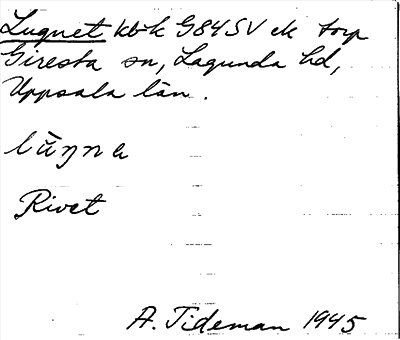 Lugnet kbk G84SV ek torp
Giresta sn, Lagunda hd,
Uppsala län.
Rivet
A. Tideman 1945